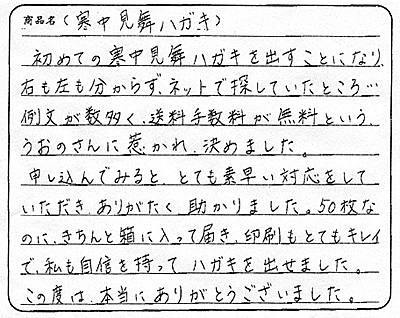 商品名(寒中見舞ハガキ)
初めての寒中見舞ハガキを出すことになり、
右も左も分からず、ネットで探していたところ…
例文が数多く、送料手数料が無料という、
うおのさんに惹かれ、決めました。
申し込んでみると、とても素早い対応をして
いただき、ありがたく 助かりました。50枚な
のに、きちんと箱に入って届き、印刷もとてもキレイ
で、私も自信を持って ハガキを出せました。
この度は、本当にありがとうございました。